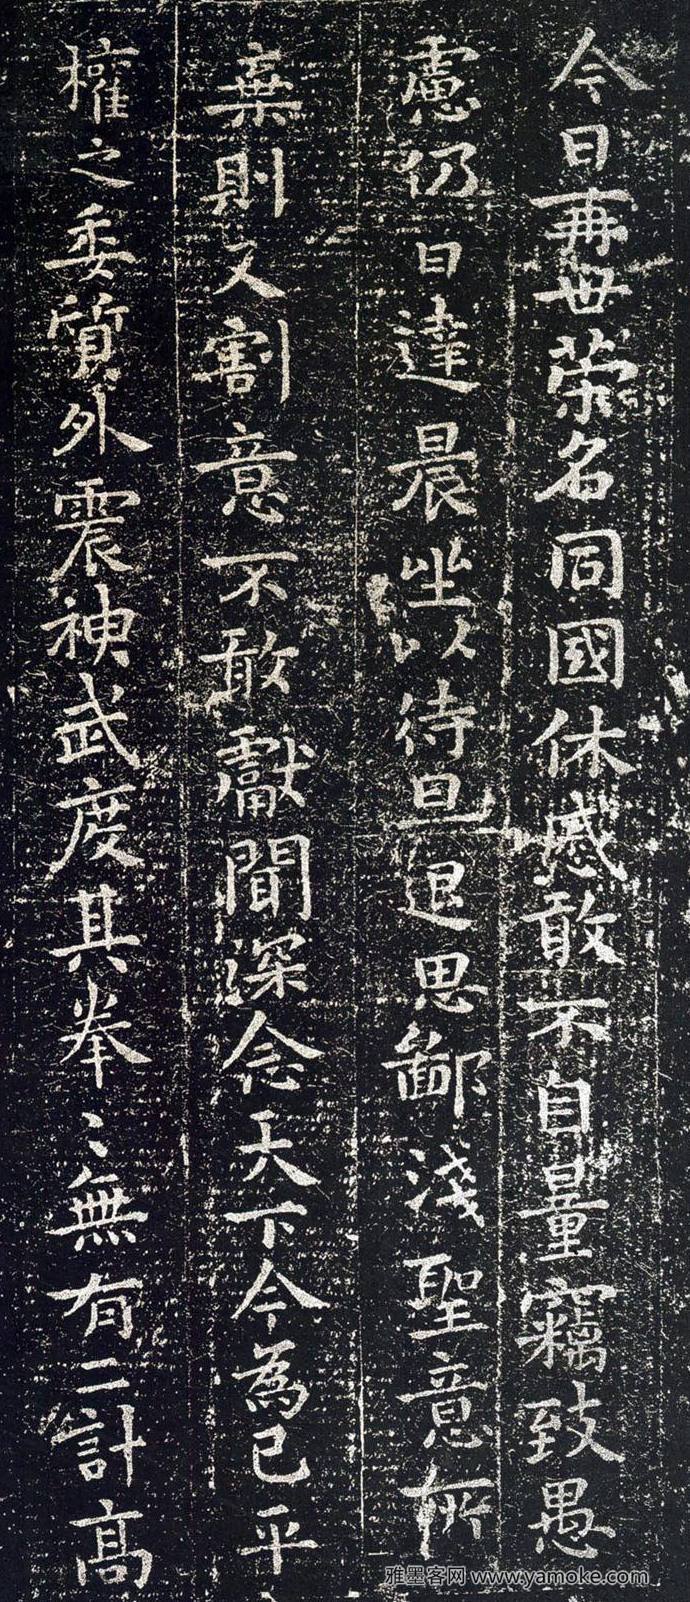 今日再世荣名同國休慼敢不自量竊致愚
慮仍日達晨坐以待旦退思鄙淺聖意所
棄則又割意不敢獻聞深念天下今為已平
權之委質外震神武度其拳〻無有二計高
雅墨客网 www.yamoke.com